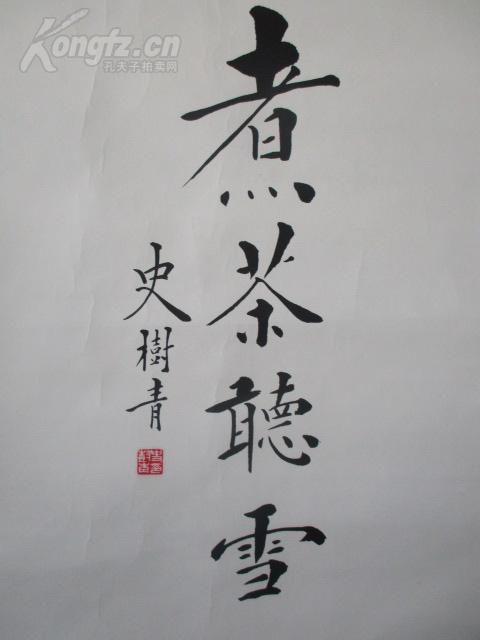 Kongfz.cn
孔夫子拍卖网
煮茶聽雪
史樹青